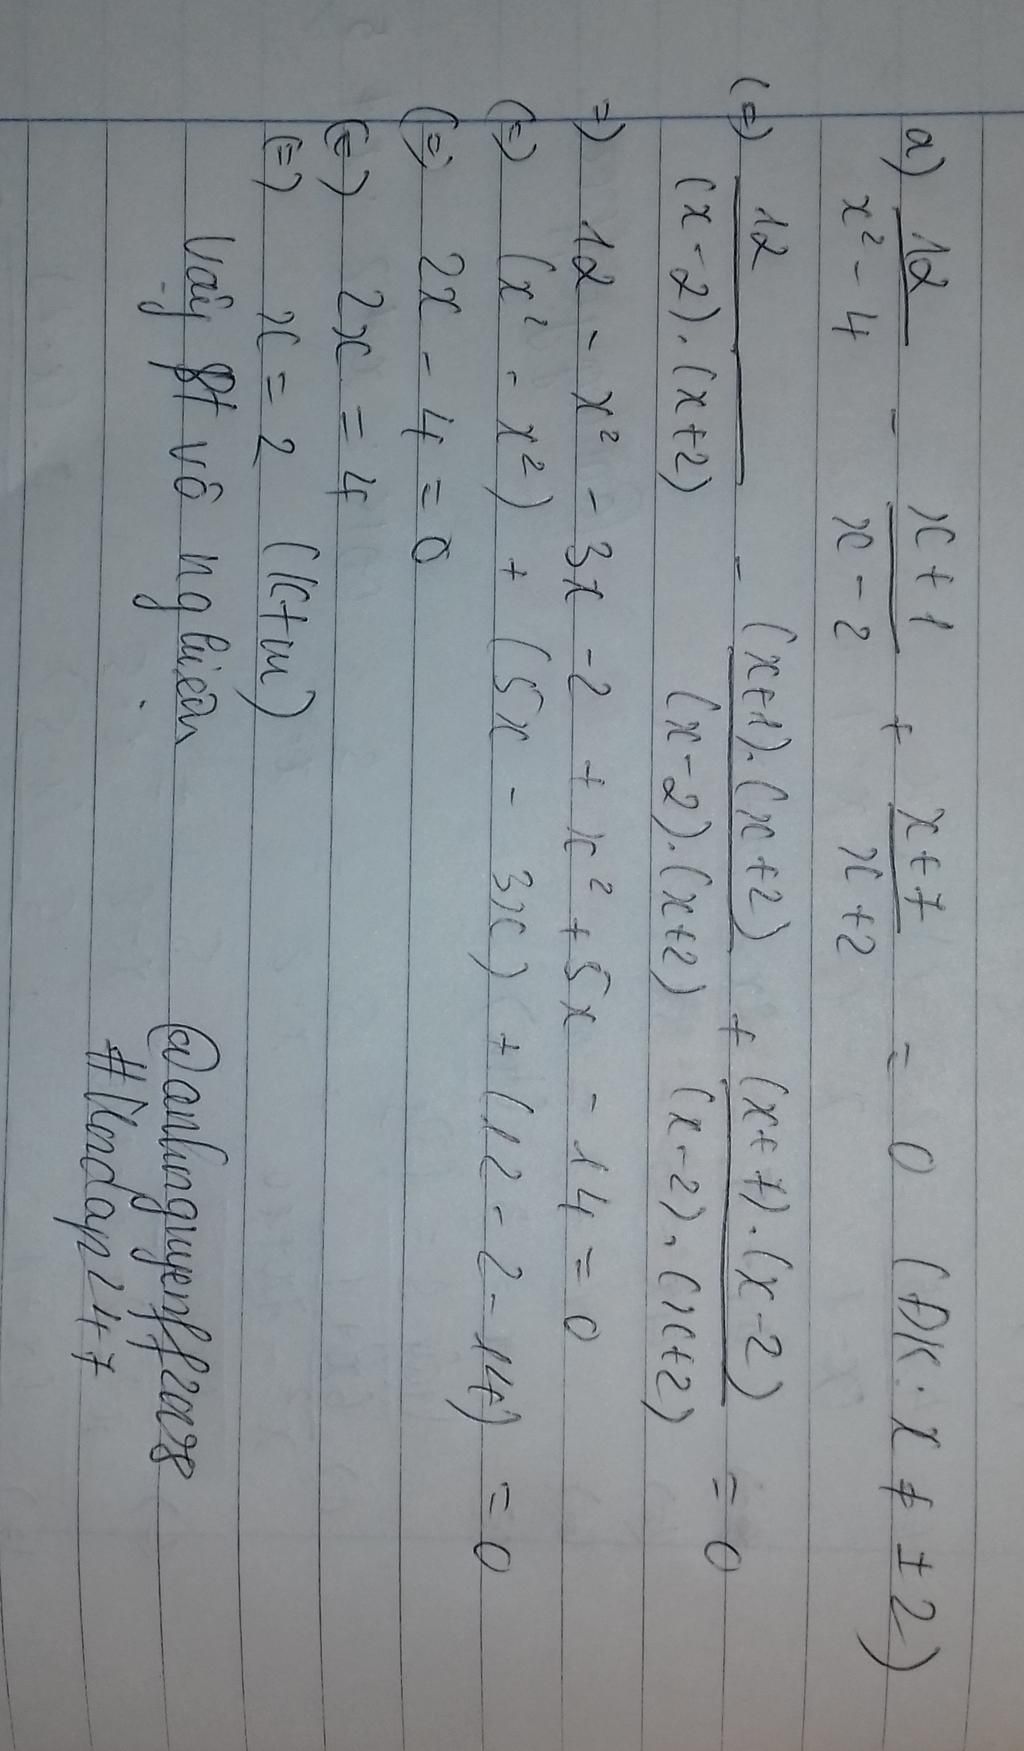 a) 12/(x² - 4) - (x+1)/(x-2) + (x+7)/(x+2) = 0 (ĐK: x ≠ ±2)
(=) 12/((x-2).(x+2)) - ((x+1).(x+2))/((x-2).(x+2)) + ((x+7).(x-2))/((x-2).(x+2)) = 0
=) 12 - x² - 3x - 2 + x² + 5x - 14 = 0
(=) (x² - x²) + (5x - 3x) + (12 - 2 - 14) = 0
(=) 2x - 4 = 0
(=) 2x = 4
(=) x = 2 (K+m)
Vậy pt vô nghiệm
@anhnguyenff2008
#Hoidap247